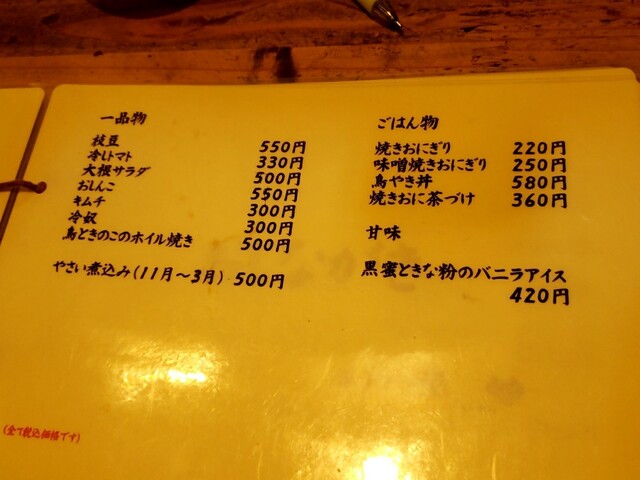 一品物
枝豆 550円
冷しトマト 330円
大根サラダ 500円
おしんこ 550円
キムチ 300円
冷奴 300円
鳥ときのこのホイル焼き 500円
やさい煮込み(11月〜3月) 500円
(全て税込価格です)
ごはん物
焼きおにぎり 220円
味噌焼きおにぎり 250円
鳥やき丼 580円
焼きおに茶づけ 360円
甘味
黒蜜ときな粉のバニラアイス
420円